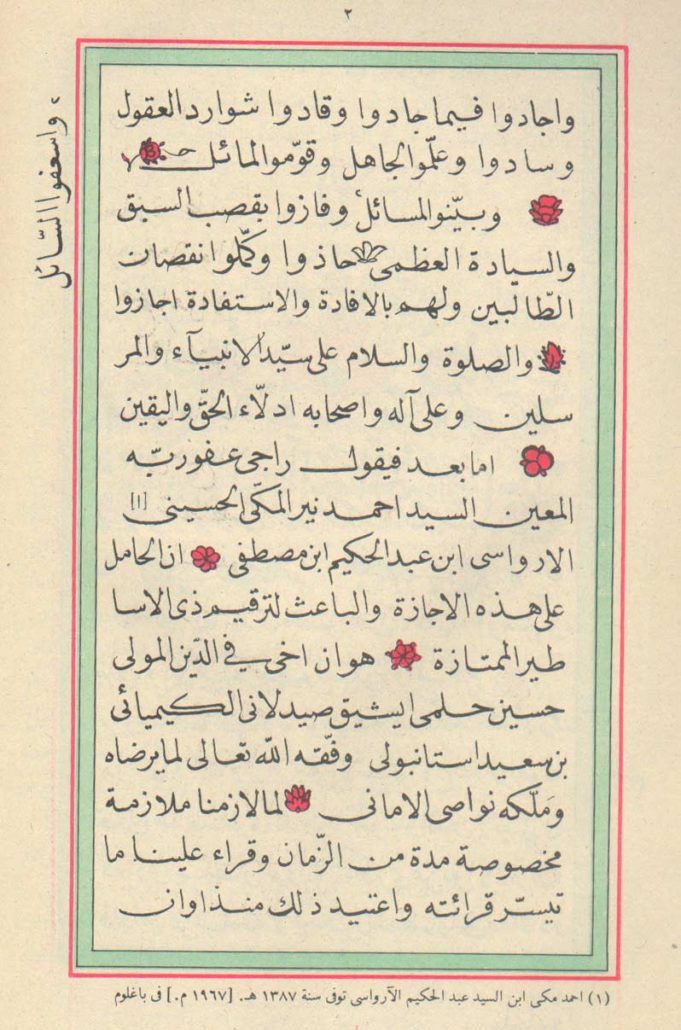 ٢
واجادوا فيما جادوا وقادوا شوارد العقول
وسادوا وعلّموا الجاهل وقوّموا المائل
وبيّنوا المسائل وفازوا بقصب السبق
والسيادة العظمى حاذوا وكمّلوا نقصان
الطّالبين ولهم بالافادة والاستفادة اجازوا
والصلوة والسلام على سيّد الانبيآء والمر
سلين وعلى آله واصحابه ادلّاء الحقّ واليقين
اما بعد فيقول راجى عفو ربّه
المعين السيد احمد نير المكّى الحسينى [١]
الارواسى ابن عبد الحكيم ابن مصطفى ان الحامل
على هذه الاجازة والباعث لترقيم ذى الاسا
طير الممتازة هو ان اخى فى الدّين المولى
حسين حلمى ايشيق صيدلانى الكيميائى
بن سعيد استانبولى وفّقه اللّه تعالى لما يرضاه
وَملّكه نواصى الامانى لما لازمنا ملازمة
مخصوصة مدة من الزّمان وقراء علينا ما
تيسّر قرائته واعتيد ذلك منذ اوان
، واسعفوا السّائل
(١) احمد مكى ابن السيد عبد الحكيم الآرواسى توفى سنة ١٣٨٧ هـ. [١٩٦٧ م.] فى باغلوم